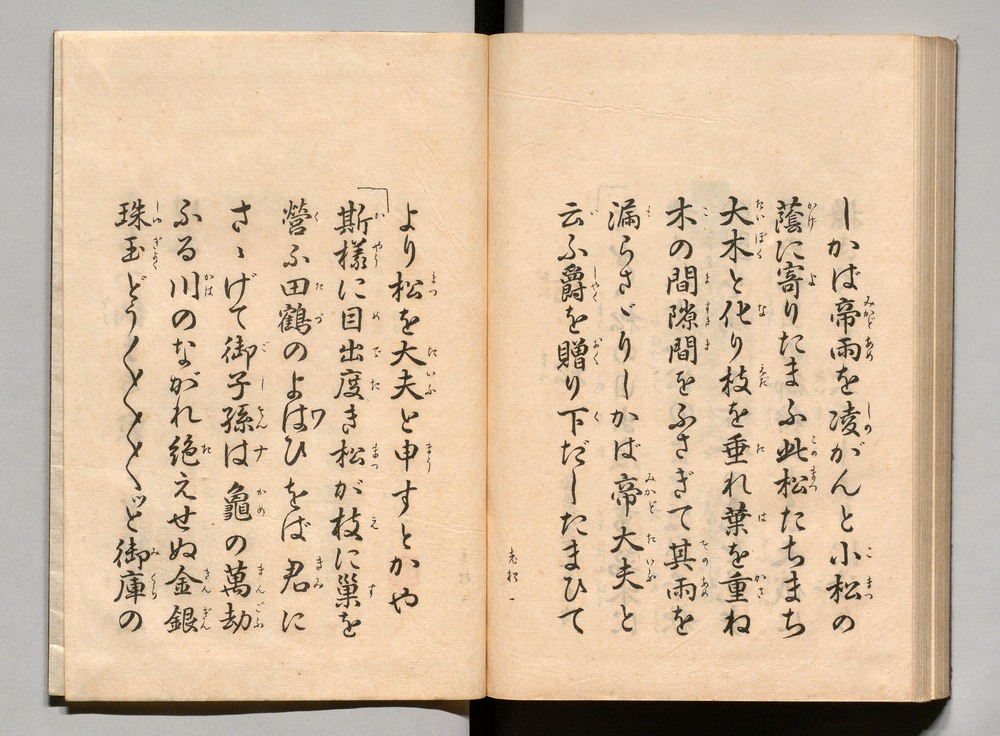 しかば帝雨を凌がんと小松の
蔭に寄りたまふ此松たちまち
大木と化り枝を垂れ葉を重ね
木の間隙間をふさぎて其雨を
漏らさゞりしかば帝大夫と
云ふ爵を贈り下だしたまひて
老松 一
より松を大夫と申すとかや
斯様に目出度き松が枝に巣を
營ふ田鶴のよはひをば君に
さゝげて御子孫は龜の萬劫
ふる川のながれ絶えせぬ金銀
珠玉どう〱〱〱〱ッと御庫の